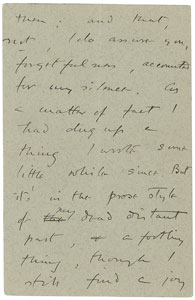 them: and that,
not, I do assure you,
forgetfulness, accounted
for my silence. As
a matter of fact I
had dug up a
thing I wrote some
little while since But
it's in the prose style
of my dead distant
past, a footling
thing, though I
still find a joy